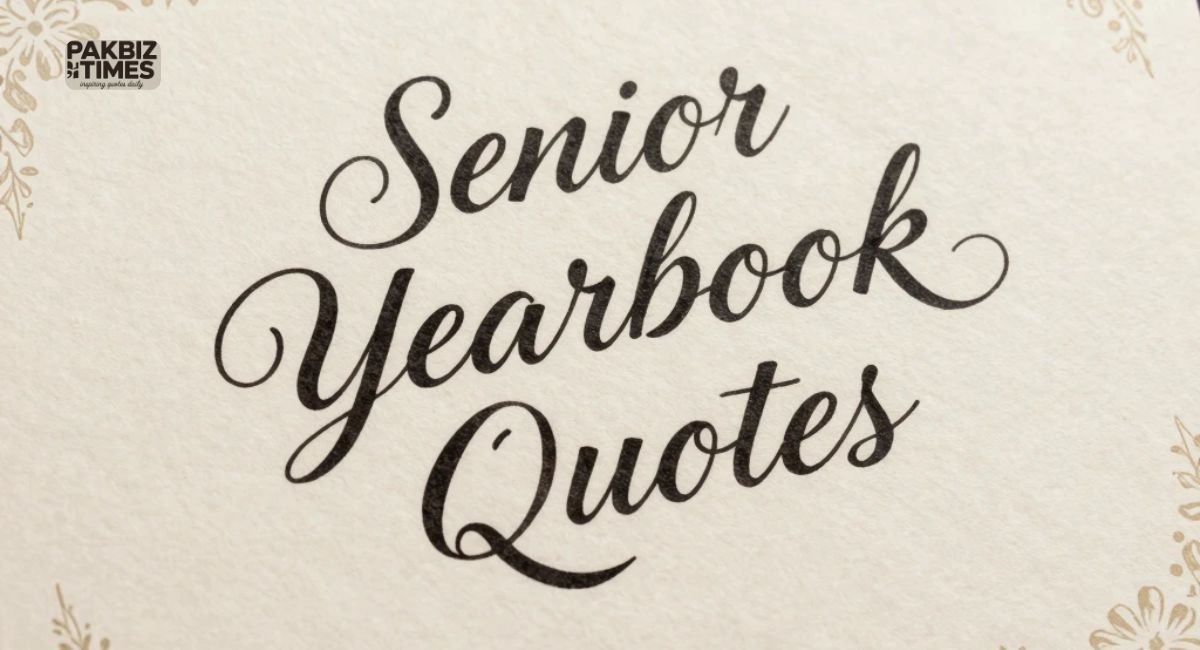 PAKBIZ
TIMES
inspiring quotes daily
Senior
Yearbook
Quotes